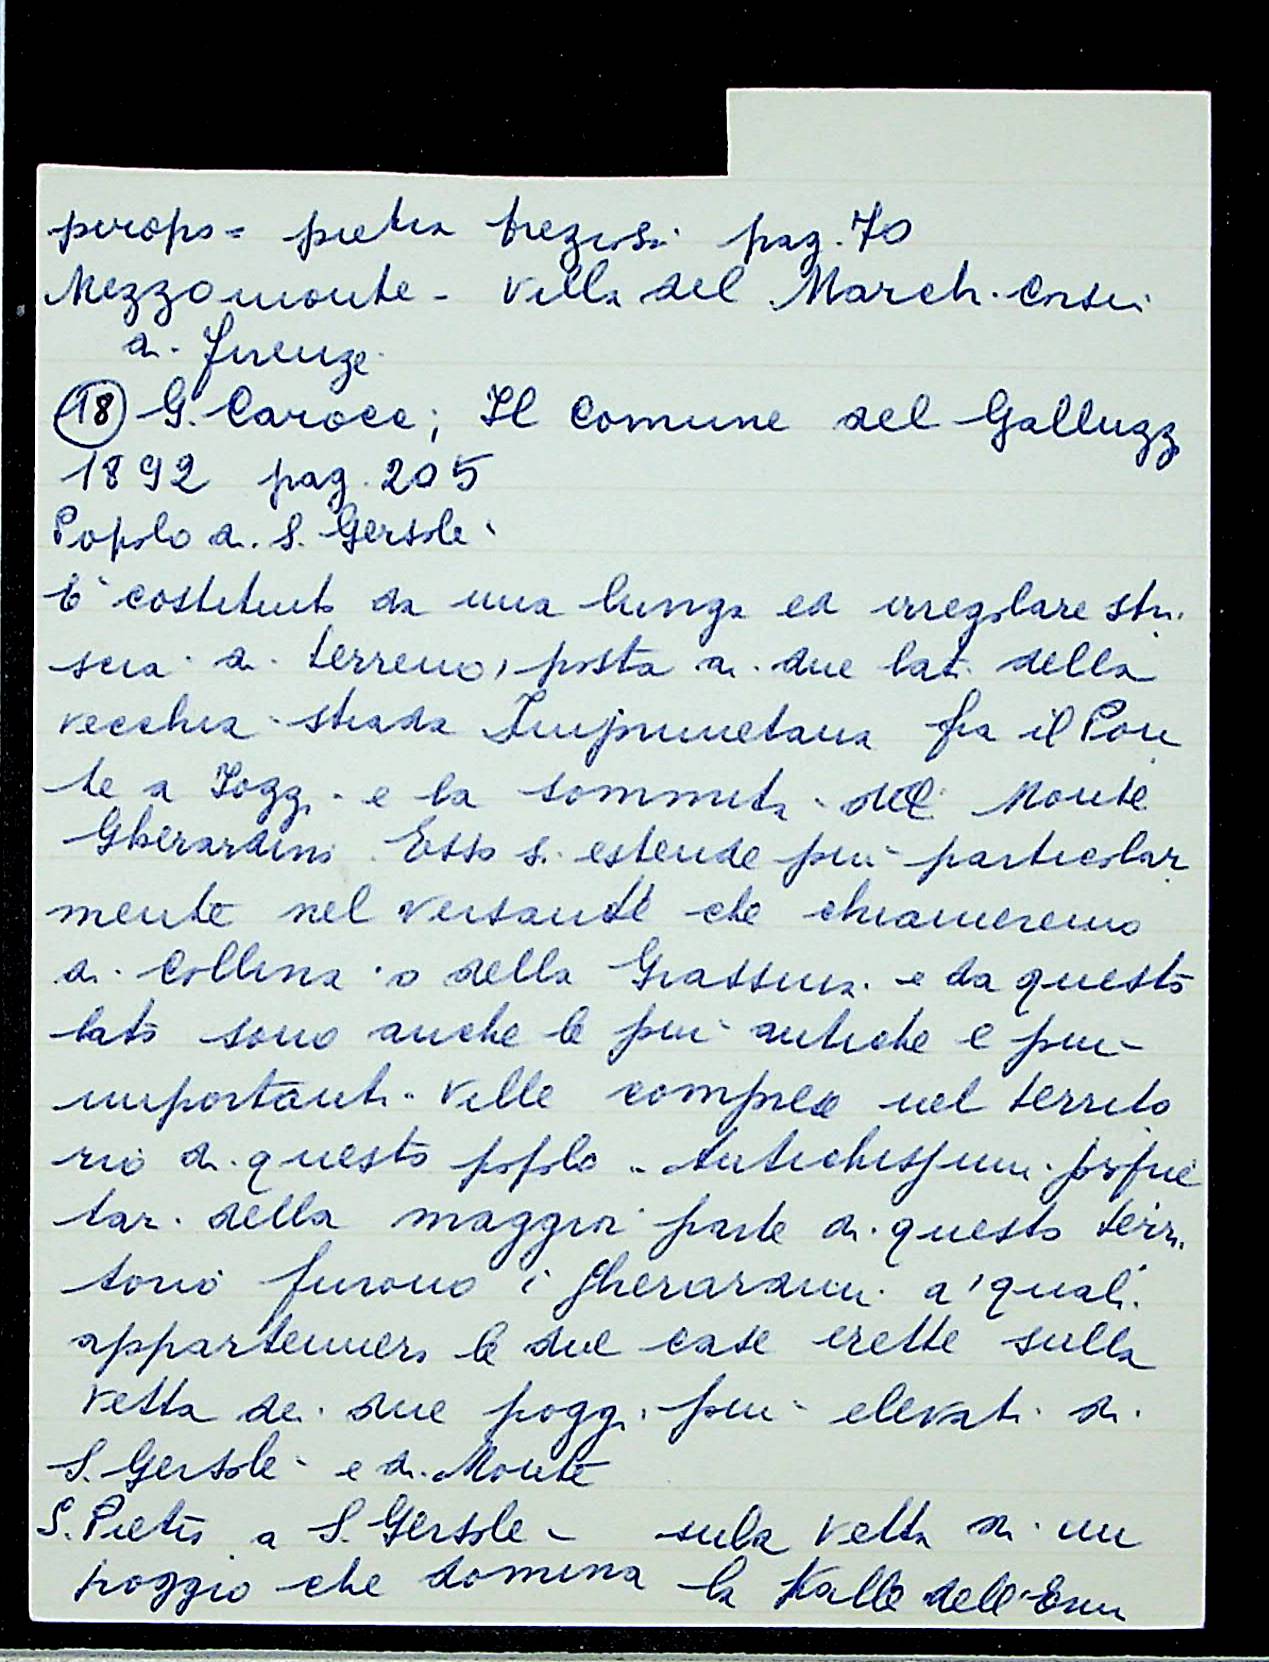 piropo = pietra preziosi pag. 70
Mezzomonte - Villa del March. Corsini
di Firenze
(18) G. Carocci; Il Comune del Galluzz
1892 pag. 205
Popolo di S. Gersolè
È costituito da una lunga ed irregolare stri
scia di terreno, posta ai due lati della
vecchia strada Imprunetana fra il Pon
te a Iozzi e la sommità del Monte
Gherardini. Esso si estende più particolar
mente nel versante che chiameremo
di Collina o della Grassina e da questo
lato sono anche le più antiche e più
importanti ville comprese nel territo
rio di questo popolo. Antichissimi proprie
tari della maggior parte di questo terri
torio furono i Gherardini a' quali
appartennero le due case erette sulla
vetta dei due poggi più elevati di
S. Gersolè e di Monte
S. Pietro a S. Gersolè - sulla vetta di un
poggio che domina la Valle dell'Ema